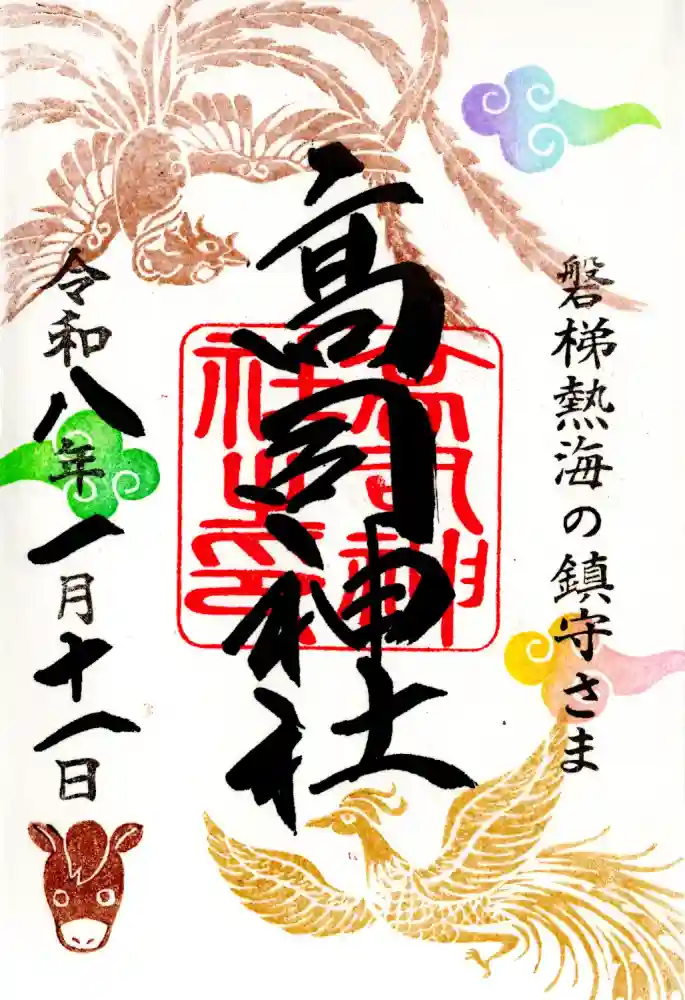 磐梯熱海の鎮守さま
高司神社
高司神社之印
令和八年一月十一日